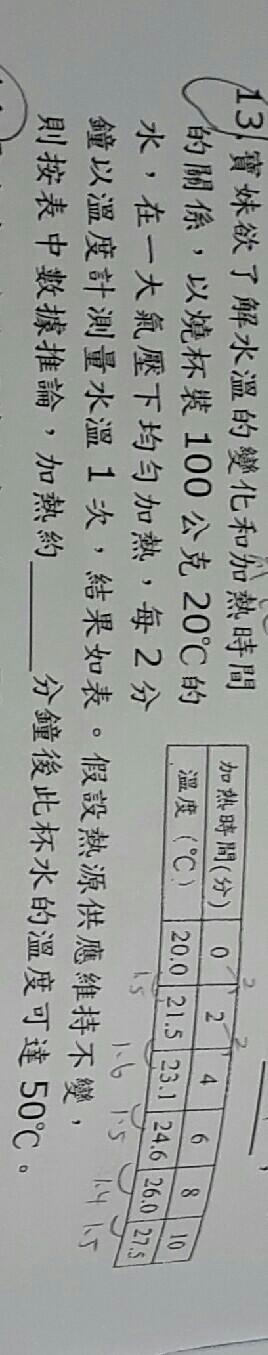 13. 寶妹欲了解水溫的變化和加熱時間
的關係，以燒杯裝 100 公克 20℃的
水，在一大氣壓下均勻加熱，每 2 分
鐘以溫度計測量水溫 1 次，結果如表。假設熱源供應維持不變，
則按表中數據推論，加熱約______分鐘後此杯水的溫度可達 50℃。
加熱時間(分) 0 2 4 6 8 10
溫度(℃) 20.0 21.5 23.1 24.6 26.0 27.5
2 2
1.5 1.6 1.5 1.4 1.5